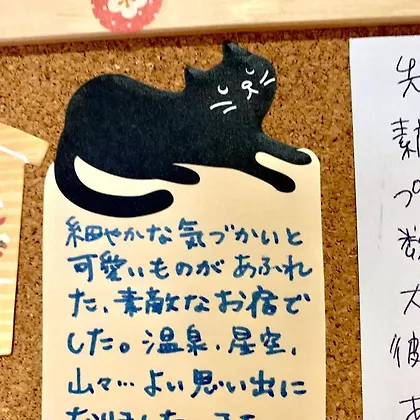 細やかな気づかいと
可愛いものがあふれ
た、素敵なお宿で
した。温泉、星空、
山々…よい思い出に
先
素
プ
数
大
彼